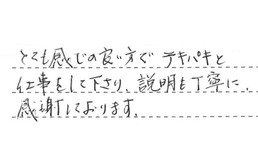 とても感じの良い方で テキパキと
仕事をして下さり、説明も丁寧に、
感謝しております。